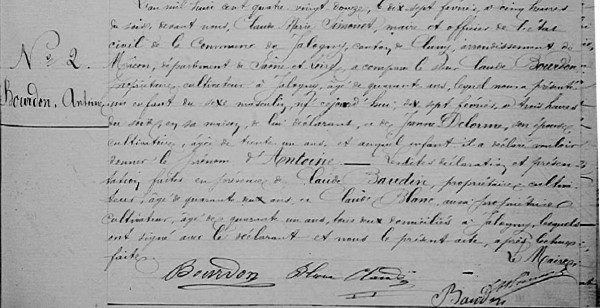 L'an mil huit cent quatre vingt douze, le dix sept février, à cinq heures
du soir, devant nous, Claude Marie Simonet, maire et officier de l'état
civil de la Commune de Jalogny, canton de Cluny, arrondissement de
Mâcon, département de Saône et Loire, a comparu le sieur Claude Bourdon
propriétaire, cultivateur à Jalogny, âgé de quarante ans, lequel nous a présenté
un enfant du sexe masculin, né cejourd'hui, dix sept février à trois heures
du soir, en sa maison, de lui déclarant, et de Jeanne Delorme, son épouse
cultivatrice, âgée de trente un ans, et auquel enfant il a déclaré vouloir
donner le prénom d'Antoine. — Lesdites déclaration et présen-
tation faites en présence de Claude Baudin, propriétaire cultiva-
teur, âgé de quarante deux ans, et Claude Blanc, aussi propriétaire
cultivateur, âgé de quarante un ans, tous deux domiciliés à Jalogny, lesquels
ont signé avec le déclarant et nous le présent acte, après lecture
faite.
Le Maire
N° 2.
Bourdon, Antoine
Bourdon Blanc Claude
Baudin